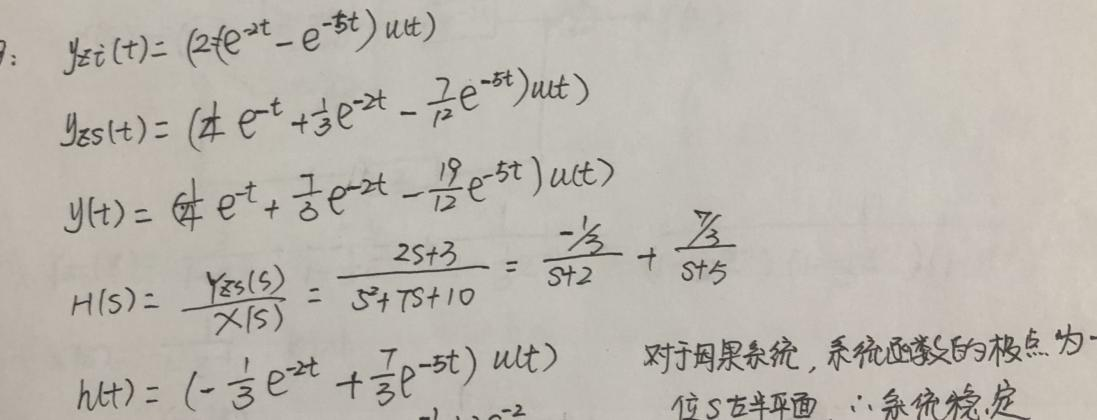 y_zi(t) = (2e^{-2t} - e^{-5t}) u(t)
y_zs(t) = (1/4 e^{-t} + 1/3 e^{-2t} - 7/12 e^{-5t}) u(t)
y(t) = (1/4 e^{-t} + 7/3 e^{-2t} - 19/12 e^{-5t}) u(t)
H(s) = Y_zs(s)/X(s) = (2s+3)/(s²+7s+10) = (-1/3)/(s+2) + (7/3)/(s+5)
h(t) = (-1/3 e^{-2t} + 7/3 e^{-5t}) u(t)
对于因果系统, 系统函数的极点为-
位S左半平面, ∴系统稳定